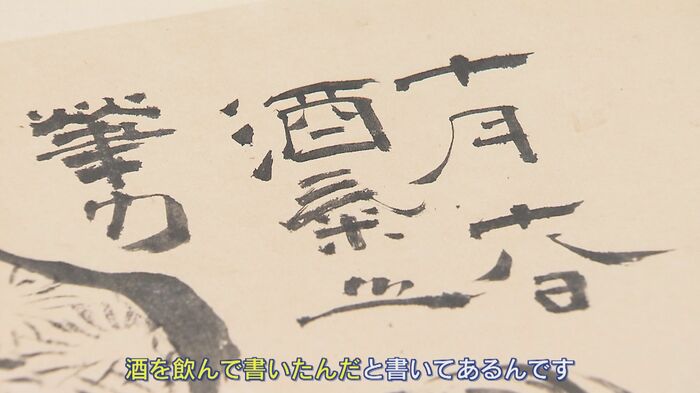 十月
酒氣
筆力
酒を飲んで書いたんだと書いてあるんです